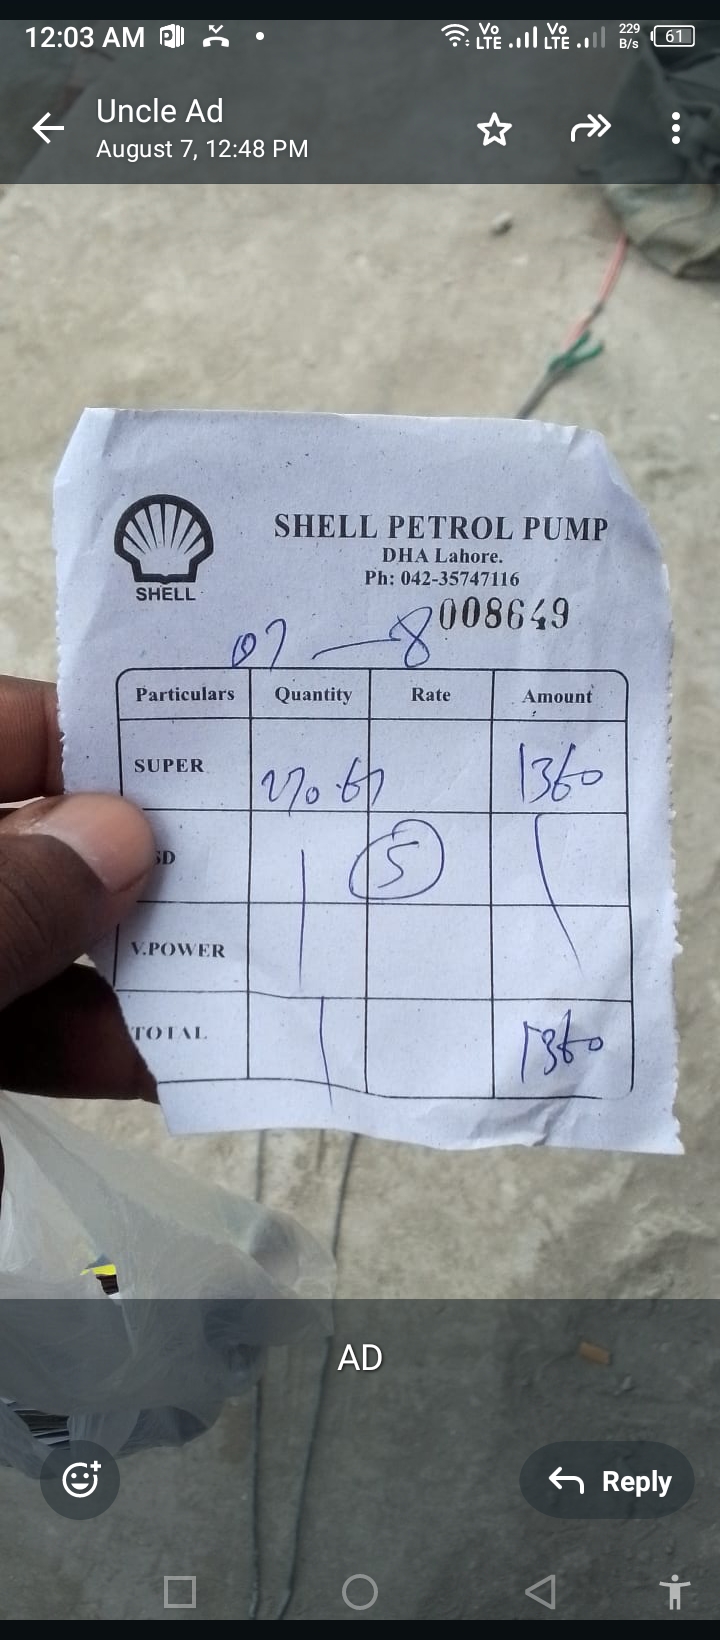 12:03 AM
Vo LTE Vo LTE 229 B/s 61
Uncle Ad
August 7, 12:48 PM
SHELL
SHELL PETROL PUMP
DHA Lahore.
Ph: 042-35747116
008649
07 — 8
Particulars Quantity Rate Amount
SUPER 270.67 1360
SD 5
V.POWER
TOTAL 1360
AD
Reply